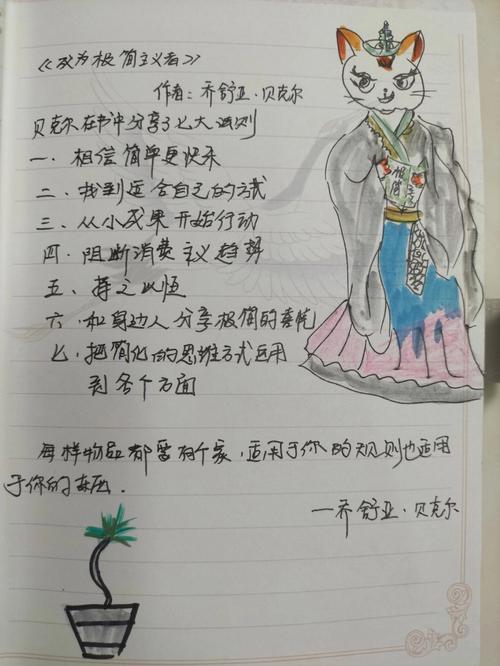 《成为极简主义者》
作者：乔舒亚·贝克尔
贝克尔在书中分享了七大法则
一、相信简单更快乐
二、找到适合自己的方式
三、从小成果开始行动
四、阻断消费主义趋势
五、持之以恒
六、和身边人分享极简的喜悦
七、把简化的思维方式运用
到各个方面
极简
每样物品都要有个家，适用于你的规则也适用
于你的东西．
—乔舒亚·贝克尔